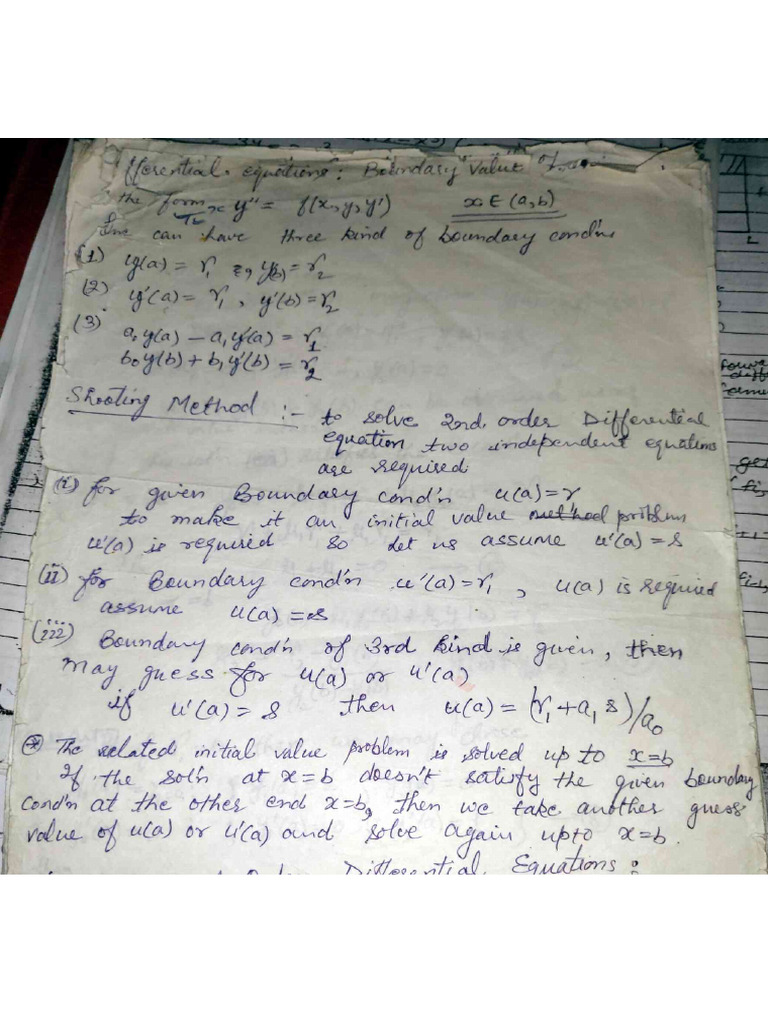 fferential equations: Boundary Value
the form y'' = f(x, y, y') x ∈ (a, b)
can have three kind of boundary cond'n
(1) y(a) = r₁ , y(b) = r₂
(2) y'(a) = r₁ , y'(b) = r₂
(3) a₀y(a) – a₁y'(a) = r₁
b₀y(b) + b₁y'(b) = r₂
Shooting Method :- to solve 2nd order Differential
equation two independent equations
are required.
(i) for given Boundary cond'n u(a) = r
to make it an initial value method problem
u'(a) is required so let us assume u'(a) = s
(ii) for Boundary cond'n u'(a) = r₁ , u(a) is required
assume u(a) = s
(iii) Boundary cond'n of 3rd kind is given, then
may guess for u(a) or u'(a)
if u'(a) = s then u(a) = (r₁ + a₁ s)/a₀
The related initial value problem is solved up to x=b
If the sol'n at x=b doesn't satisfy the given boundary
cond'n at the other end x=b, then we take another guess
value of u(a) or u'(a) and solve again upto x=b.
Differential Equations: